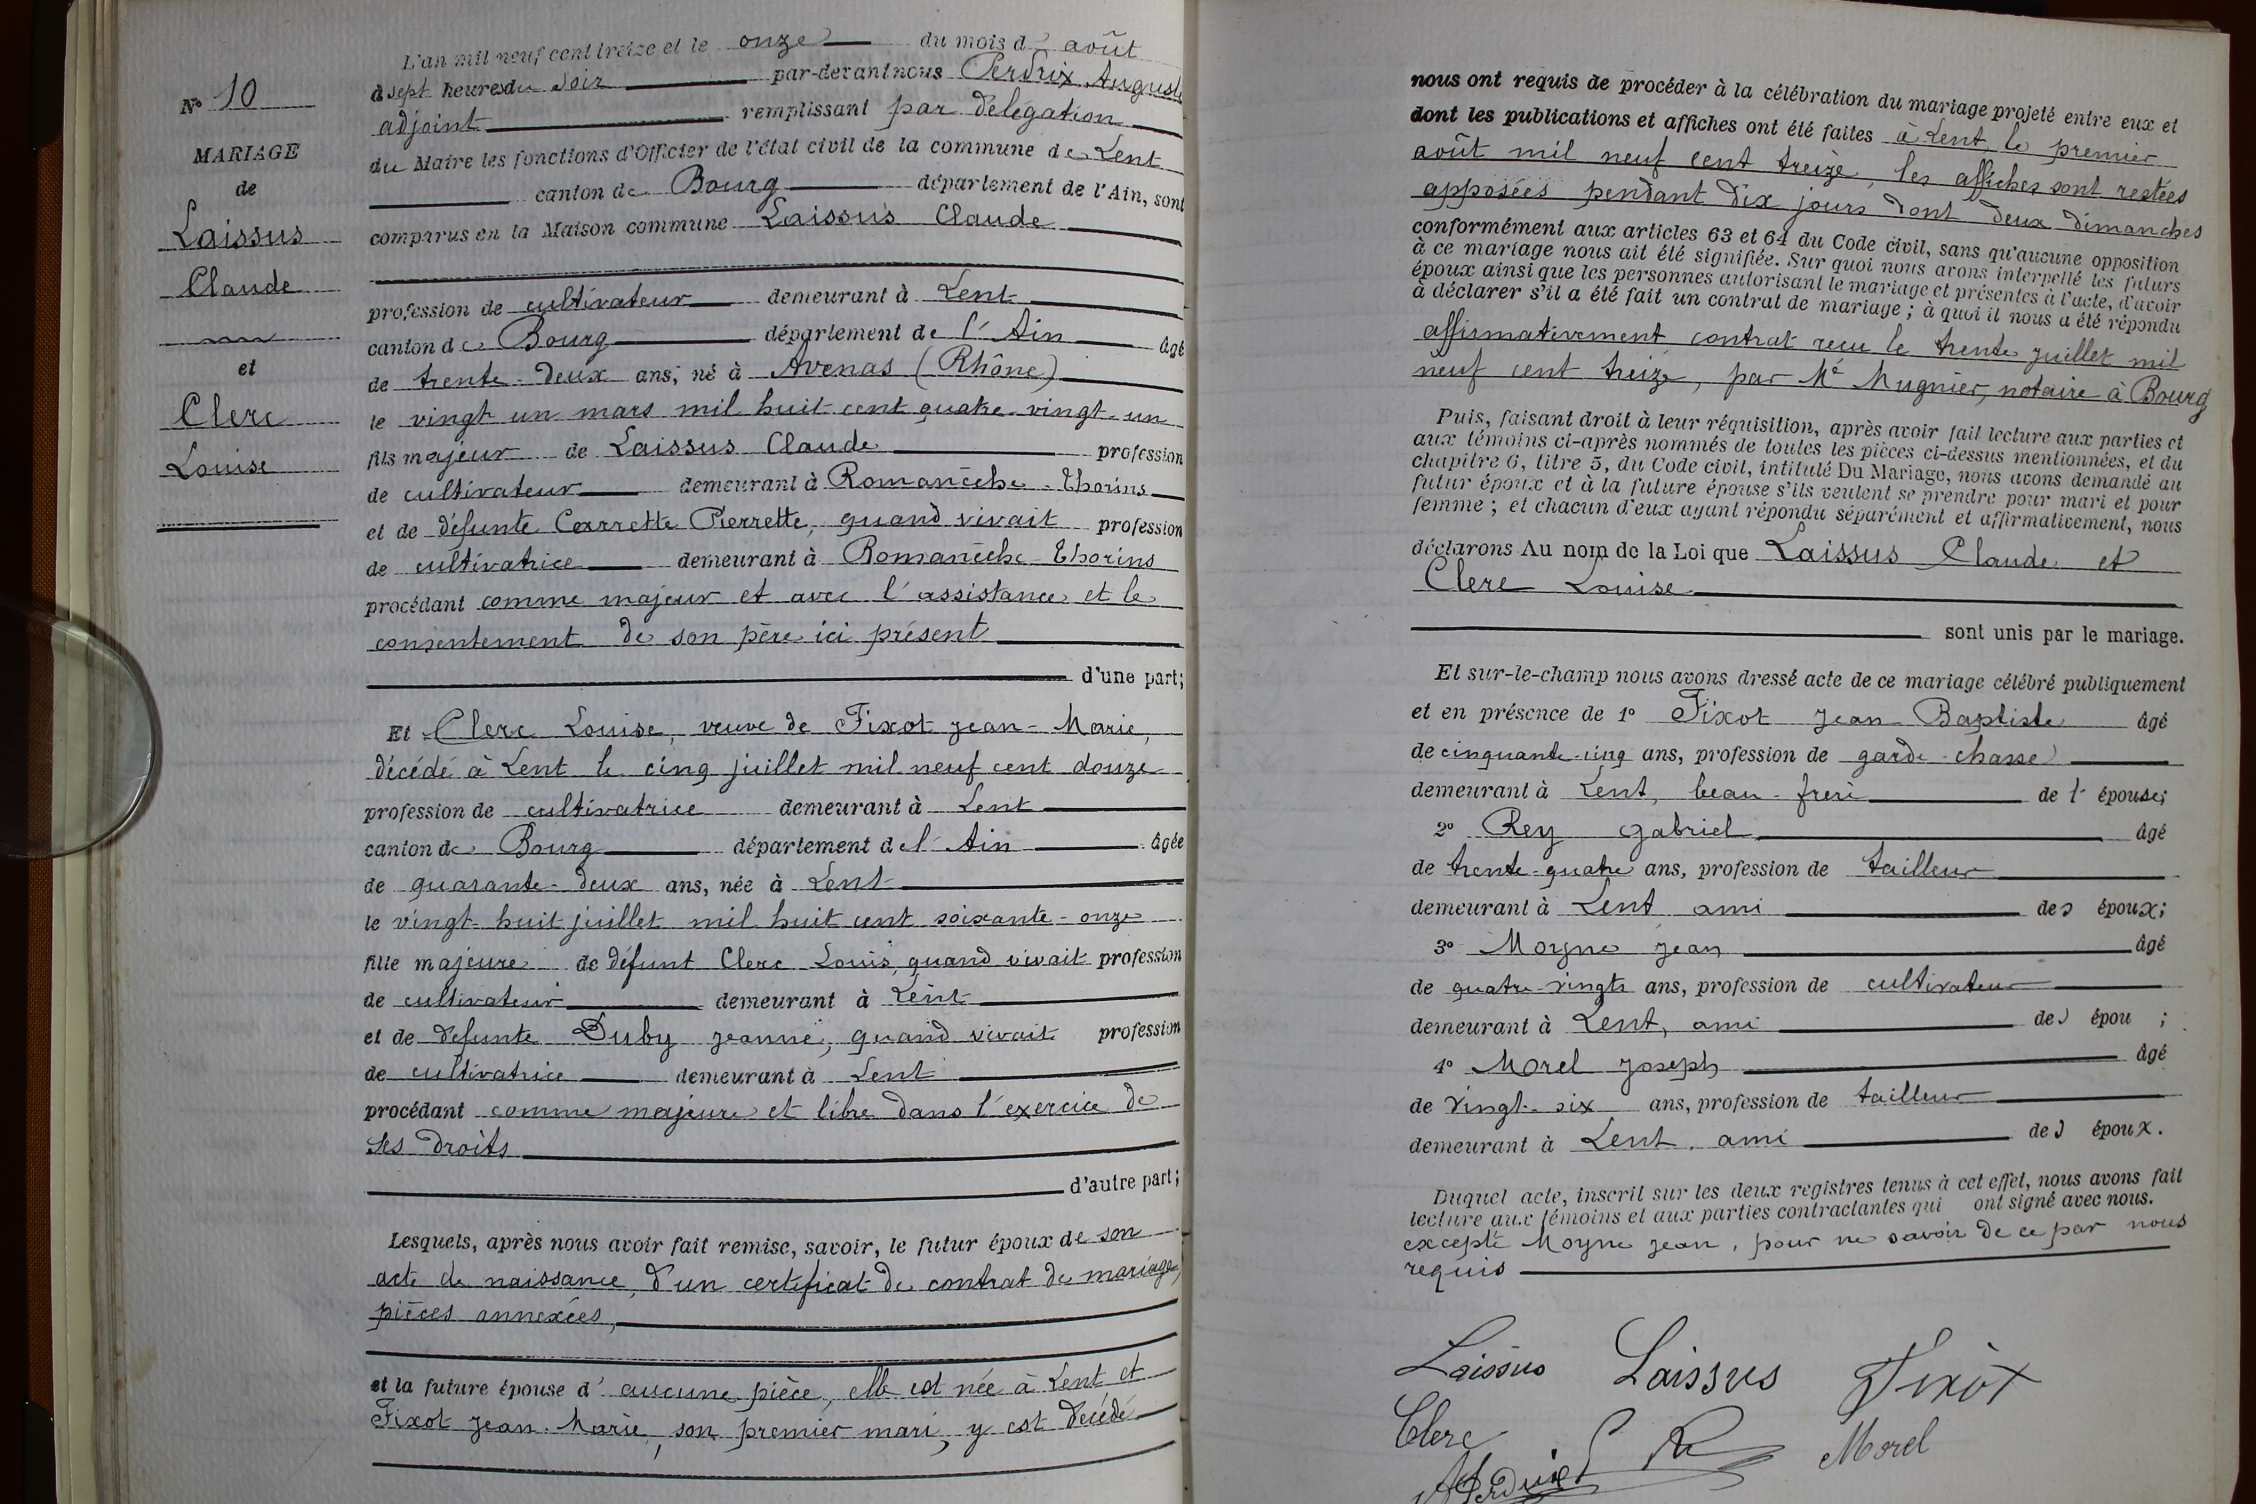 N° 10
MARIAGE
de
Laissus
Claude
et
Clerc
Louise
L'an mil neuf cent treize et le onze du mois d' août
à sept heures du soir par-devant nous Perdrix Auguste
adjoint remplissant par délégation
du Maire les fonctions d'Officier de l'état civil de la commune de Lent
canton de Bourg département de l'Ain, sont
comparus en la Maison commune Laissus Claude
profession de cultivateur demeurant à Lent
canton de Bourg département de l'Ain âgé
de trente-deux ans, né à Avenas (Rhône)
le vingt un mars mil huit cent quatre-vingt-un
fils majeur de Laissus Claude profession
de cultivateur demeurant à Romanèche-Thorins
et de défunte Carrette Pierrette, quand vivait profession
de cultivatrice demeurant à Romanèche-Thorins
procédant comme majeur et avec l'assistance et le
consentement de son père ici présent
d'une part;
Et Clerc Louise, veuve de Fixot Jean-Marie,
décédé à Lent le cinq juillet mil neuf cent douze
profession de cultivatrice demeurant à Lent
canton de Bourg département de l'Ain âgée
de quarante-deux ans, née à Lent
le vingt-huit juillet mil huit cent soixante-onze
fille majeure de défunt Clerc Louis, quand vivait profession
de cultivateur demeurant à Lent
et de défunte Duby Jeanne, quand vivait profession
de cultivatrice demeurant à Lent
procédant comme majeure et libre dans l'exercice de
ses droits
d'autre part;
Lesquels, après nous avoir fait remise, savoir, le futur époux de son
acte de naissance, d'un certificat de contrat de mariage,
pièces annexées,
et la future épouse d' aucune pièce, elle est née à Lent et
Fixot Jean-Marie, son premier mari, y est décédé
nous ont requis de procéder à la célébration du mariage projeté entre eux et
dont les publications et affiches ont été faites à Lent, le premier
août mil neuf cent treize, les affiches sont restées
apposées pendant dix jours dont deux dimanches
conformément aux articles 63 et 64 du Code civil, sans qu'aucune opposition
à ce mariage nous ait été signifiée. Sur quoi nous avons interpellé les futurs
époux ainsi que les personnes autorisant le mariage et présentes à l'acte, d'avoir
à déclarer s'il a été fait un contrat de mariage; à quoi il nous a été répondu
affirmativement contrat reçu le trente juillet mil
neuf cent treize, par Me Mugnier, notaire à Bourg
Puis, faisant droit à leur réquisition, après avoir fait lecture aux parties et
aux témoins ci-après nommés de toutes les pièces ci-dessus mentionnées, et du
chapitre 6, titre 5, du Code civil, intitulé Du Mariage, nous avons demandé au
futur époux et à la future épouse s'ils veulent se prendre pour mari et pour
femme; et chacun d'eux ayant répondu séparément et affirmativement, nous
déclarons Au nom de la Loi que Laissus Claude et
Clerc Louise
sont unis par le mariage.
Et sur-le-champ nous avons dressé acte de ce mariage célébré publiquement
et en présence de 1° Fixot Jean Baptiste âgé
de cinquante-cinq ans, profession de garde-chasse
demeurant à Lent, beau-frère de l' épouse;
2° Rey Gabriel âgé
de trente-quatre ans, profession de tailleur
demeurant à Lent ami des époux;
3° Moyne Jean âgé
de quatre-vingts ans, profession de cultivateur
demeurant à Lent, ami des épou ;
4° Morel Joseph âgé
de vingt-six ans, profession de tailleur
demeurant à Lent, ami des époux.
Duquel acte, inscrit sur les deux registres tenus à cet effet, nous avons fait
lecture aux témoins et aux parties contractantes qui ont signé avec nous.
excepté Moyne Jean, pour ne savoir de ce par nous
requis
Laissus Laissus Fixot
Clerc Morel